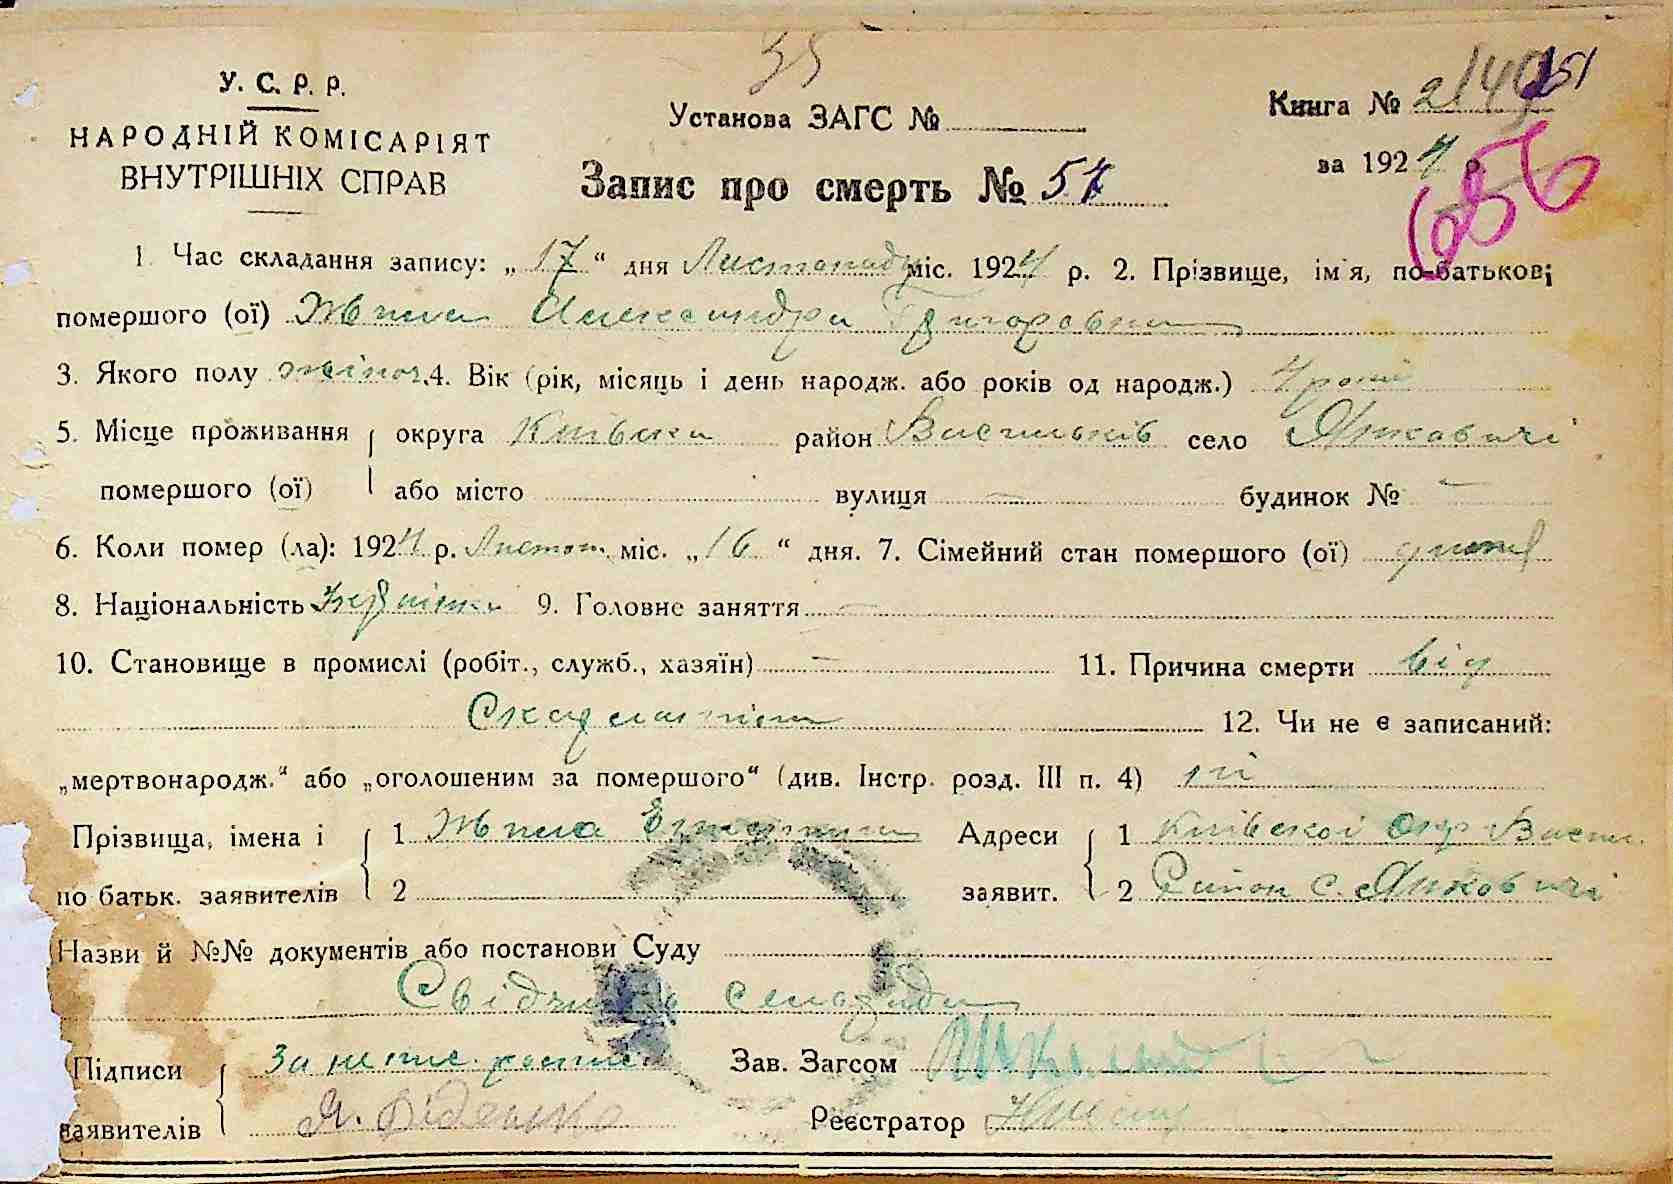 35
У. С. Р. Р.
НАРОДНІЙ КОМІСАРІЯТ
ВНУТРІШНІХ СПРАВ
Установа ЗАГС №
Книга №
за 1924 р.
656
Запис про смерть № 57
1. Час складання запису: „17“ дня Листопаду міс. 1924 р. 2. Прізвище, ім'я, по-батькові
помершого (ої) Александра Григоровна
3. Якого полу жіноч. 4. Вік (рік, місяць і день народж. або років од народж.) 4 роки
5. Місце проживання округа Київска район Васильків село Яцковичі
помершого (ої) або місто вулиця — будинок № —
6. Коли помер (ла): 1924 р. Листоп. міс. „16“ дня. 7. Сімейний стан помершого (ої)
8. Національність 9. Головне заняття —
10. Становище в промислі (робіт., служб., хазяїн) — 11. Причина смерти від
Скарлатіни 12. Чи не є записаний:
„мертвонародж.“ або „оголошеним за помершого“ (див. Інстр. розд. III п. 4) ні
Прізвища, імена і 1 Адреси 1 Київскої Окр Васил.
по батьк. заявителів 2 заявит. 2 Район с. Яцковичі
Назви й №№ документів або постанови Суду
Свідчить сельради
Підписи За непис. Зав. Загсом
заявителів Я. Діденко Реєстратор